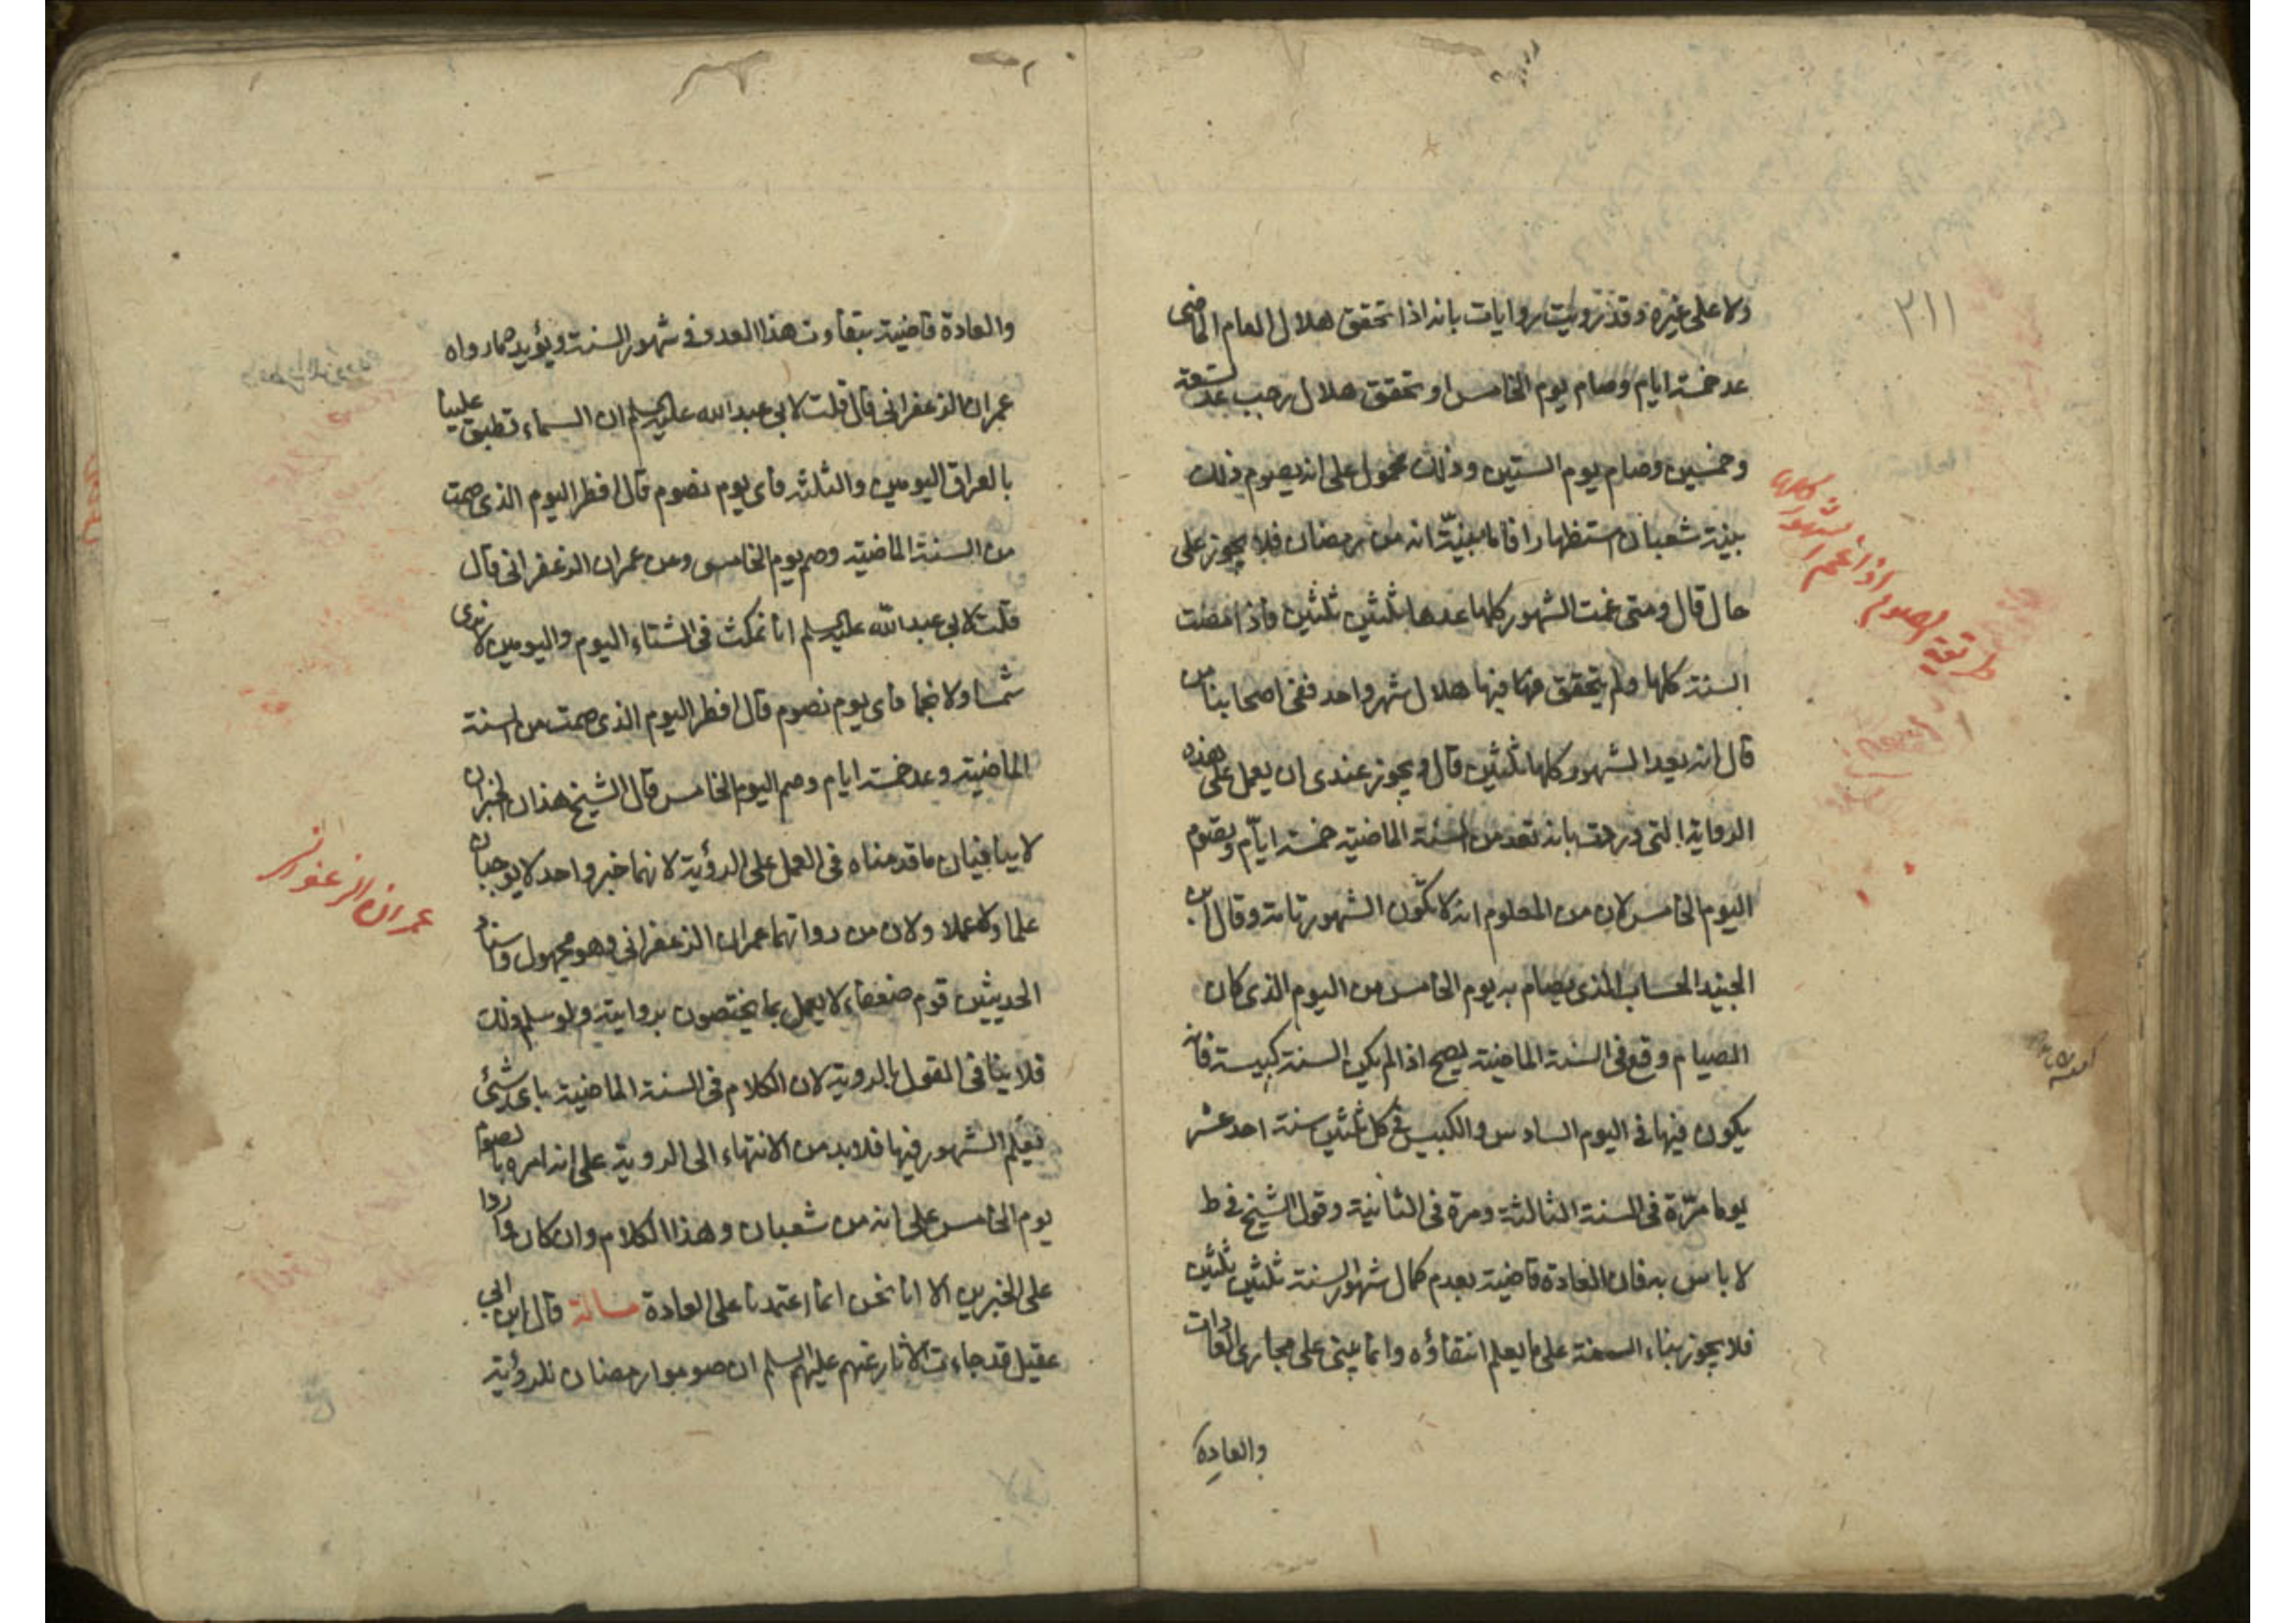 ولا على غيره وقد رويت روايات بانه اذا تحقق هلال العام الماضى
عد خمسة ايام وصام يوم الخامس او تحقق هلال رجب عد تسعة
وخمسين وصام يوم الستين وذلك محمول على انه يصوم ذلك
بنية شعبان استظهارا فاما بنية انه من رمضان فلا يجوز على
حال قال ومتى غمت الشهور كلها عدها ثلثين ثلثين فاذا مضت
السنة كلها ولم يتحقق فيها هلال شهر واحد ففى اصحابنا من
قال انه يعد الشهور كلها ثلثين قال ويجوز عندى ان يعمل على هذه
الرواية التى وردت بانه تعد من السنة الماضية خمسة ايام ويصوم
اليوم الخامس لان من المعلوم انه لا تكون الشهور تامة وقال ابن
الجنيد الحساب الذى يصام به يوم الخامس من اليوم الذى كان
الصيام وقع فى السنة الماضية يصح اذا لم يكن السنة كبيسة فانه
يكون فيها فى اليوم السادس والكبيس فى كل ثلثين سنة احد عشر
يوما مرّة فى السنة الثالثة ومرة فى الثانية وقول الشيخ فى ط
لا باس به فان العادة قاضية بعدم كمال شهور السنة ثلثين ثلثين
فلا يجوز بناء السنة على ما يعلم انتفاؤه وانما يبنى على مجارى العادات
والعادة
٢١١
طريقة الصوم اذا غم الشهور كلها
والعادة قاضية بتفاوت هذا العدد فى شهور السنة ويؤيده ما رواه
عمران الزعفرانى قال قلت لابى عبد الله عليه السلم ان السماء تطبق علينا
بالعراق اليومين والثلثة فاى يوم نصوم قال افطر اليوم الذى صمت
من السنة الماضية وصم يوم الخامس وعن عمران الزعفرانى قال
قلت لابى عبد الله عليه السلم انا نمكث فى الشتاء اليوم واليومين لا نرى
شمسا ولا نجما فاى يوم نصوم قال افطر اليوم الذى صمت من السنة
الماضية وعد خمسة ايام وصم اليوم الخامس قال الشيخ هذان الخبران
لا ينافيان ما قدمناه فى العمل على الرؤية لانهما خبر واحد لا يوجبان
علما ولا عملا ولان من رواتهما عمران الزعفرانى وهو مجهول واسناد
الحديثين قوم ضعفاء لا يعمل بما يختصون بروايته ولو سلم ذلك
فلا ينافى القول بالروية لان الكلام فى السنة الماضية باى شئ
تعلم الشهور فيها فلا بد من الانتهاء الى الروية على انه امره بان يصوم
يوم الخامس على انه من شعبان وهذا الكلام وان كان واردا
على الخبرين الا انا نحن انما اعتمدنا على العادة مسالة قال ابن ابى
عقيل قد جاءت الاثار عنهم عليهم السلم ان صوموا رمضان للرؤية
عمران الزعفرانى